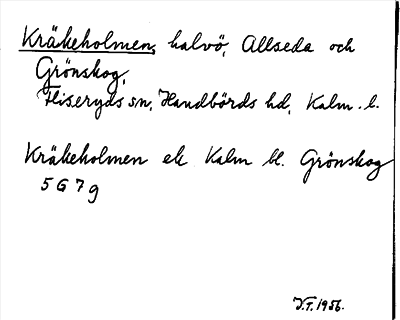 Kråkeholmen, halvö, Allseda och
Grönskog,
Fliseryds sn, Handbörds hd, Kalm. l.
Kråkeholmen ek Kalm bl. Grönskog
5 G 7 g
V.T. 1956.